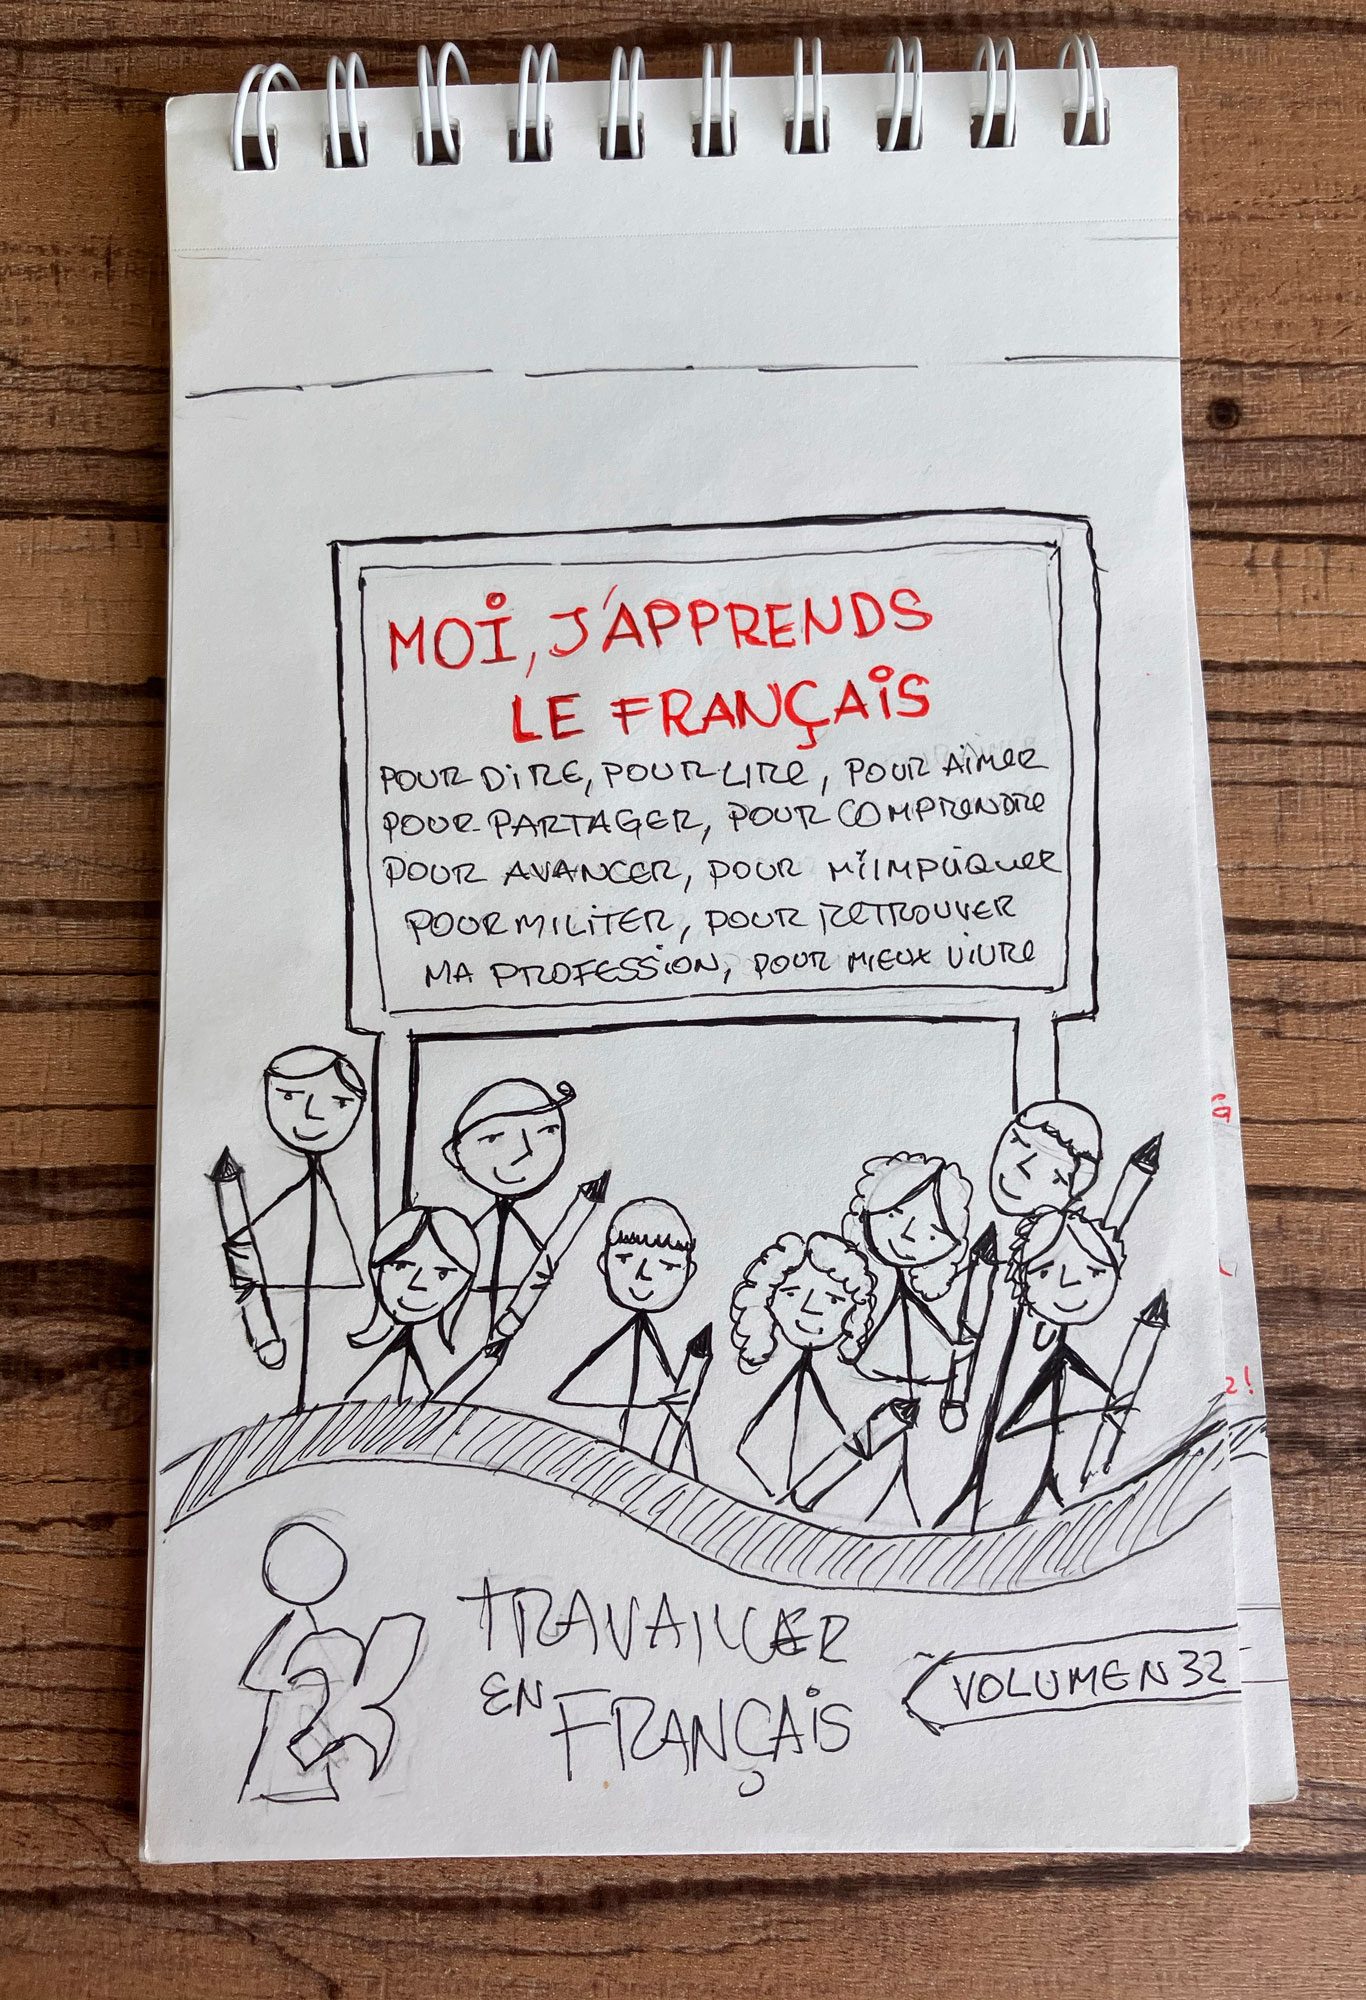 MOI, J'APPRENDS
LE FRANÇAIS
POUR DIRE, POUR LIRE, POUR AIMER
POUR PARTAGER, POUR COMPRENDRE
POUR AVANCER, POUR M'IMPLIQUER
POUR MILITER, POUR RETROUVER
MA PROFESSION, POUR MIEUX VIVRE
TRAVAILLER
EN FRANÇAIS
VOLUMEN 32